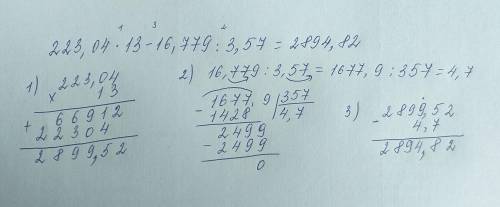 1 3 2
223,04 · 13 - 16,779 : 3,57 = 2894,82
1) 223,04
× 13
+ 66912
22304
2899,52
2) 16,779 : 3,57 = 1677,9 : 357 = 4,7
- 1677,9 | 357
1428 4,7
- 2499
2499
0
3) - 2899,52
4,7
2894,82